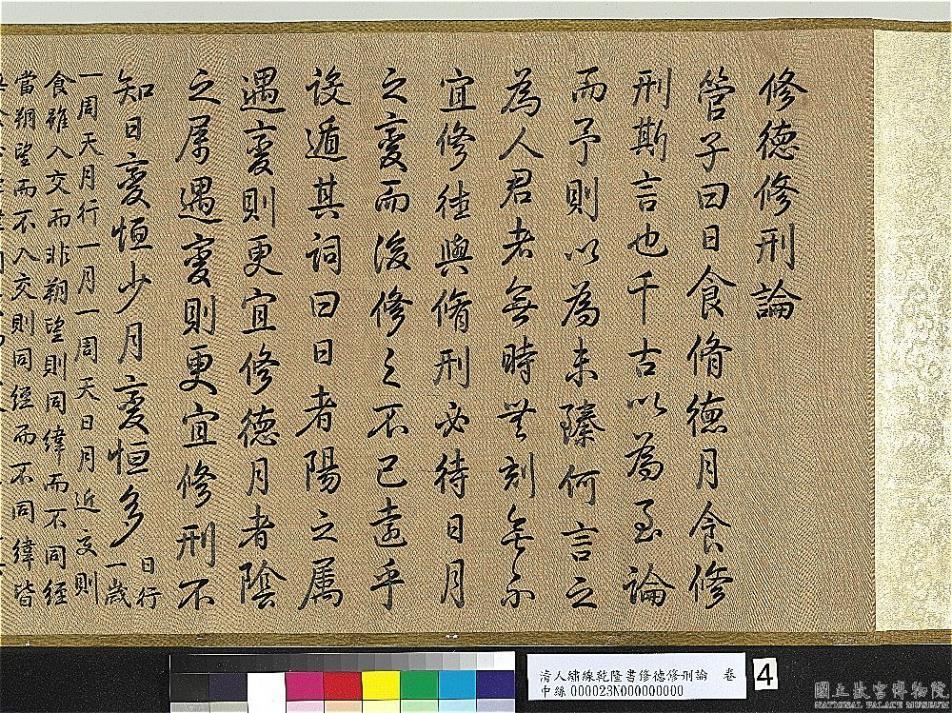 修德修刑論
管子曰日食脩德月食修
刑斯言也千古以為至論
而予則以為未臻何言之
為人君者無時無刻無不
宜修德與脩刑必待日月
之變而後修之不已遠乎
設遁其詞曰日者陽之属
遇變則更宜修德月者陰
之属遇變則更宜修刑不
知日變恒少月變恒多日行一歲
一周天月行一月一周天日月近交則
食雖入交而非朔望則同緯而不同經
當朔望而不入交則同經而不同緯皆
清人繡線乾隆書修德修刑論 卷
中絲000023N000000000
4
國立故宮博物院
NATIONAL PALACE MUSEUM